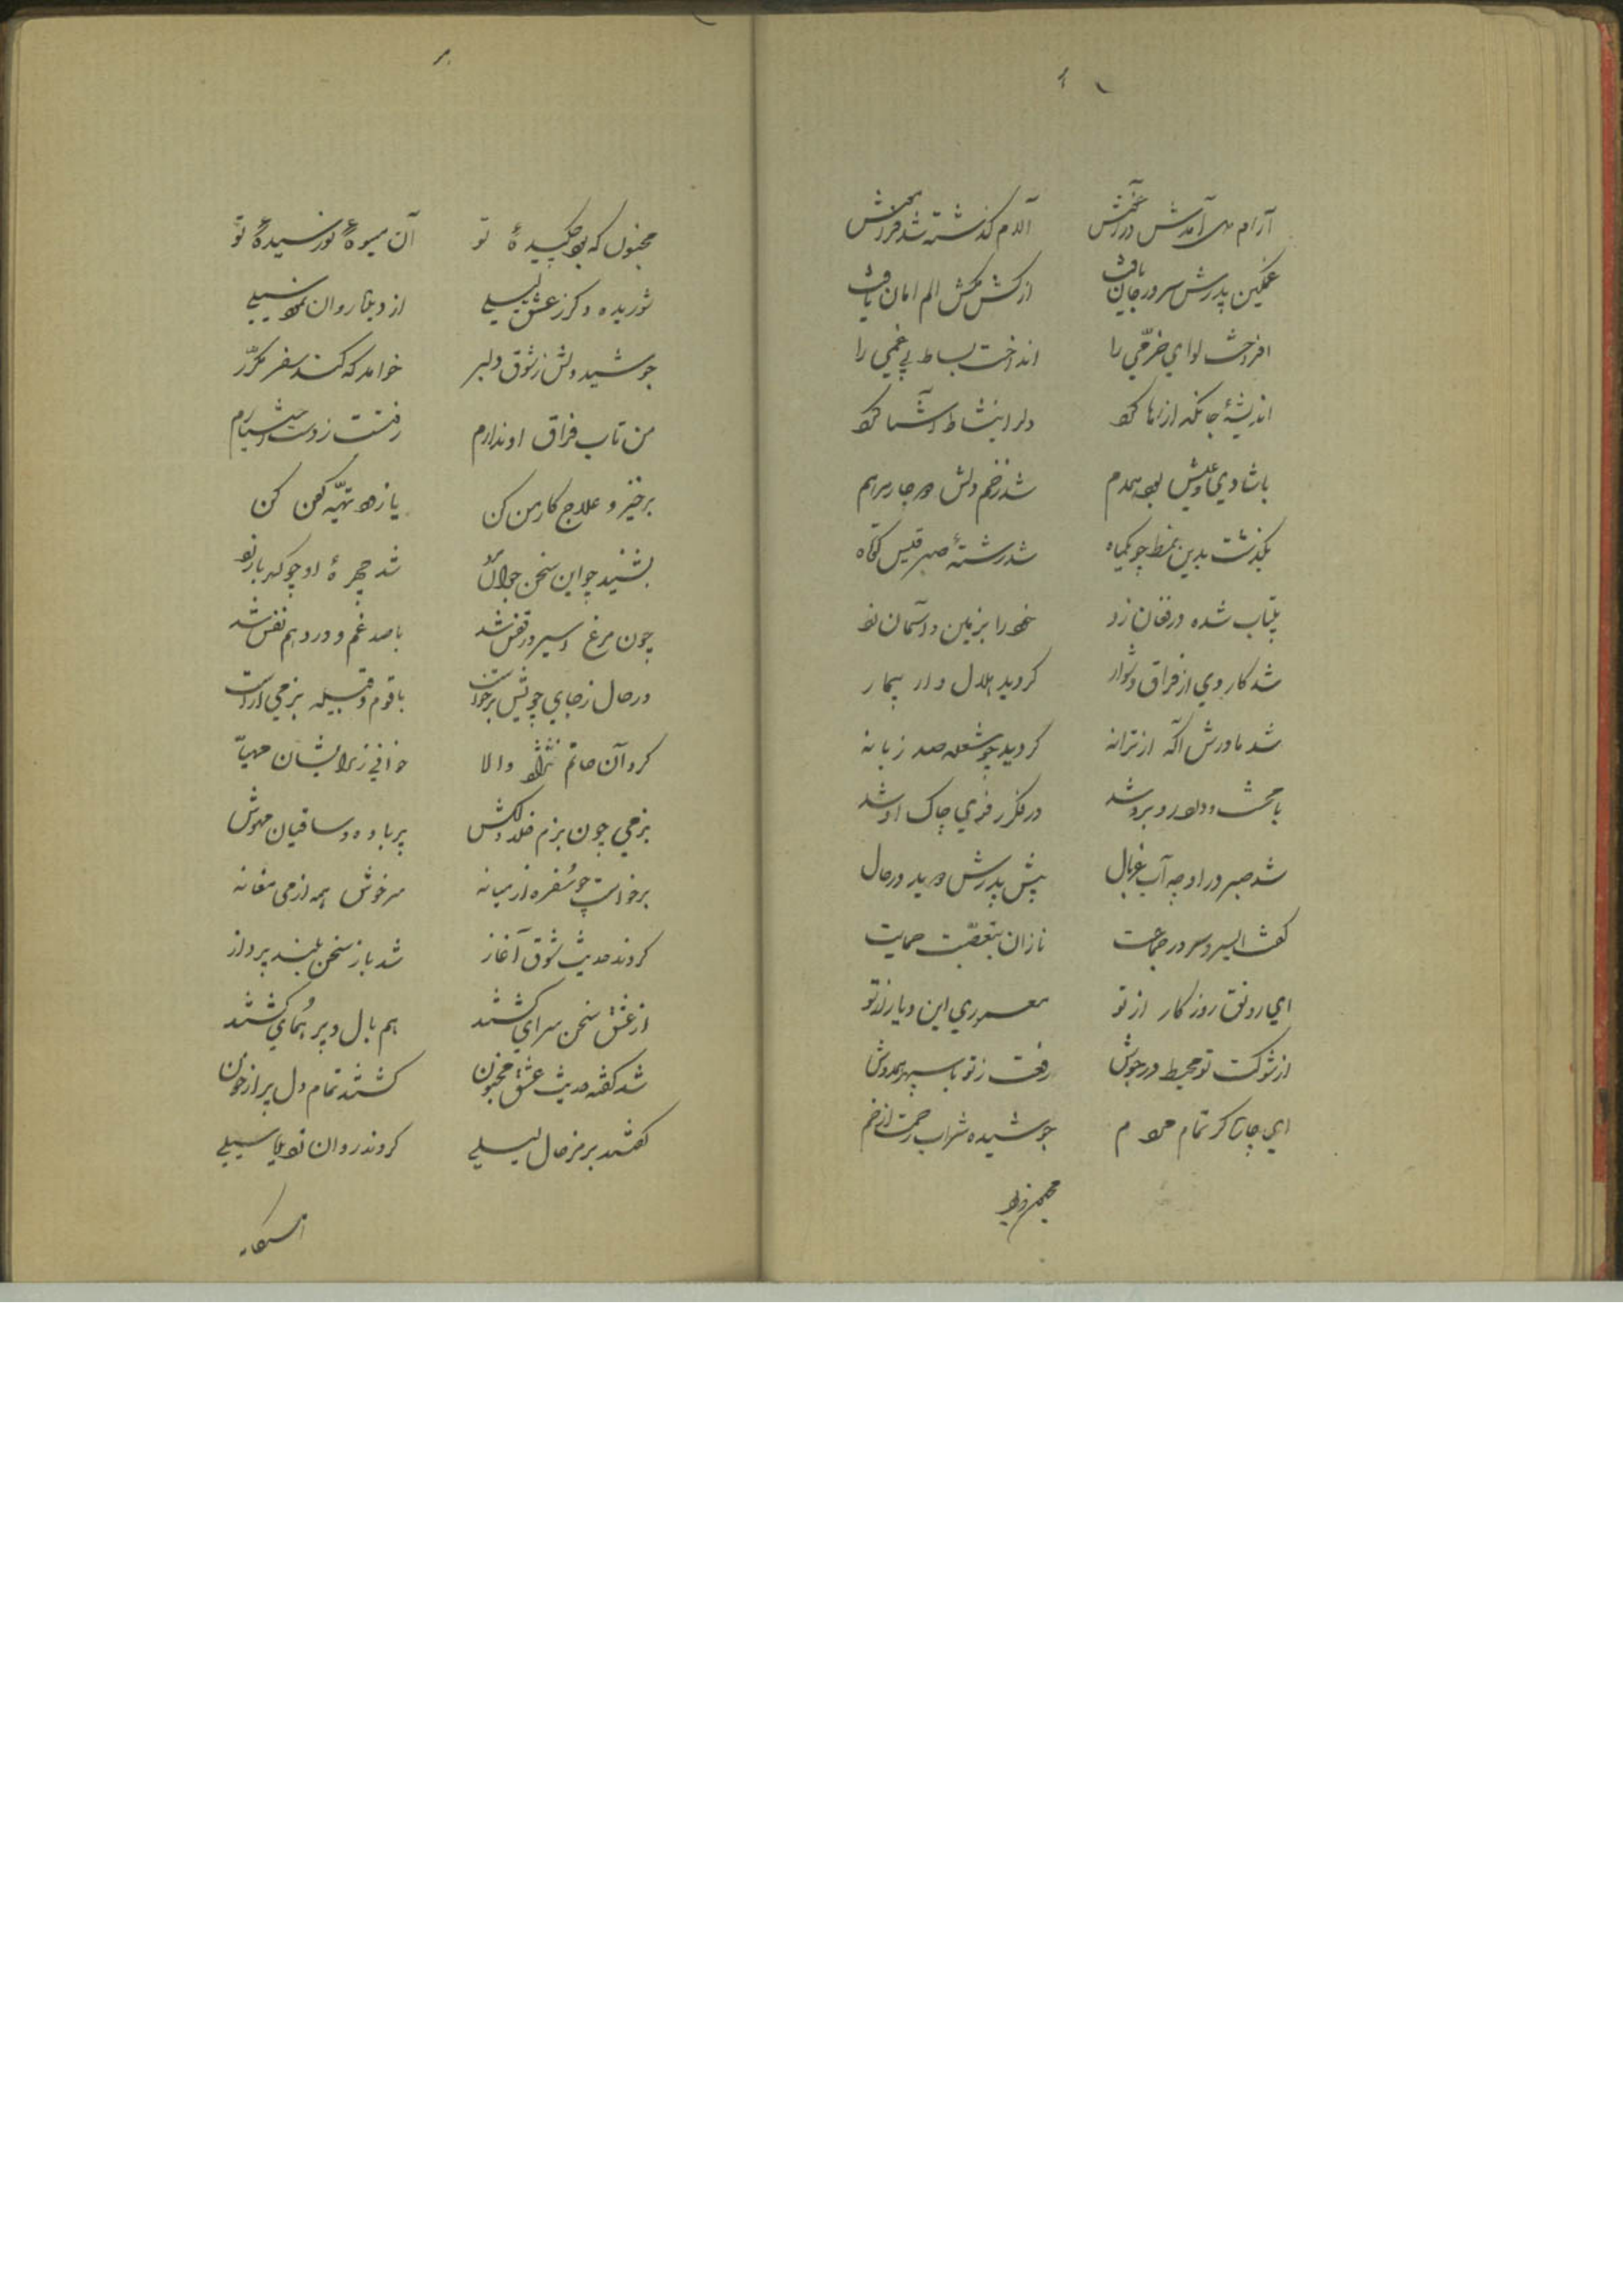 آرام آمدش در آغوش آلام گذشته شد فراموش
غمگین پدرش سرور جان یافت از کشمکش الم امان یافت
افراخت لوای خرّمی را انداخت بساط بی غمی را
اندیشهٔ جانگداز رها کرد دل را بنشاط آشنا کرد
با شادی و عیش بود همدم شد زخم دلش دوچار مرهم
بگذشت بدین نمط چو یکماه شد رشتهٔ صبر قیس کوتاه
بیتاب شده در فغان زد خود را بزمین و آسمان زد
شد کار وی از فراق دشوار گردید هلال وار بیمار
شد مادرش آگه از ترانه گردید چو شعله صد زبانه
با محنت و درد روبرو شد در فکر رفوی چاک او شد
شد صبر در او چو آب غربال پیش پدرش دوید در حال
گفت ای سر و سرور جماعت نازان بتعصّبت حمایت
ای رونق روزگار از تو معموری این دیار از تو
از شوکت تو محیط در جوش رفعت ز تو با سپهر همدوش
ای چاره گر تمام مردم جوشیده شراب رحمت از خم
مجنون که بود چکیدهٔ تو آن میوهٔ نورسیدهٔ تو
شوریده دگر ز عشق لیلی از دیده روان نمود سیلی
جوشید دلش ز شوق دلبر خواهد که کند سفر مکرّر
من تاب فراق او ندارم رفتست ز دست اختیارم
برخیز و علاج کار من کن یا زود تهیّه کفن کن
بشنید چو این سخن جوانمرد شد چهرهٔ او چو کهربا زرد
چون مرغ اسیر در قفس شد با صد غم و درد هم نفس شد
در حال ز جای خویش برخاست با قوم و قبیله بزمی آراست
کرد آن حاتم نژاد والا خوانی ز برایشان مهیّا
بزمی چون بزم خلد دلکش پر باده و ساقیان مهوش
برخواست چو سُفره از میانه سرخوش همه از می مغانه
کردند حدیث شوق آغاز شد باز سخن بلند پرواز
از عشق سخن سرای گشتند هم بال و پر هُمای گشتند
شد گفته حدیث عشق مجنون گشتند تمام دل پر از خون
گفتند برمز حال لیلی کردند روان ز دیده سیلی